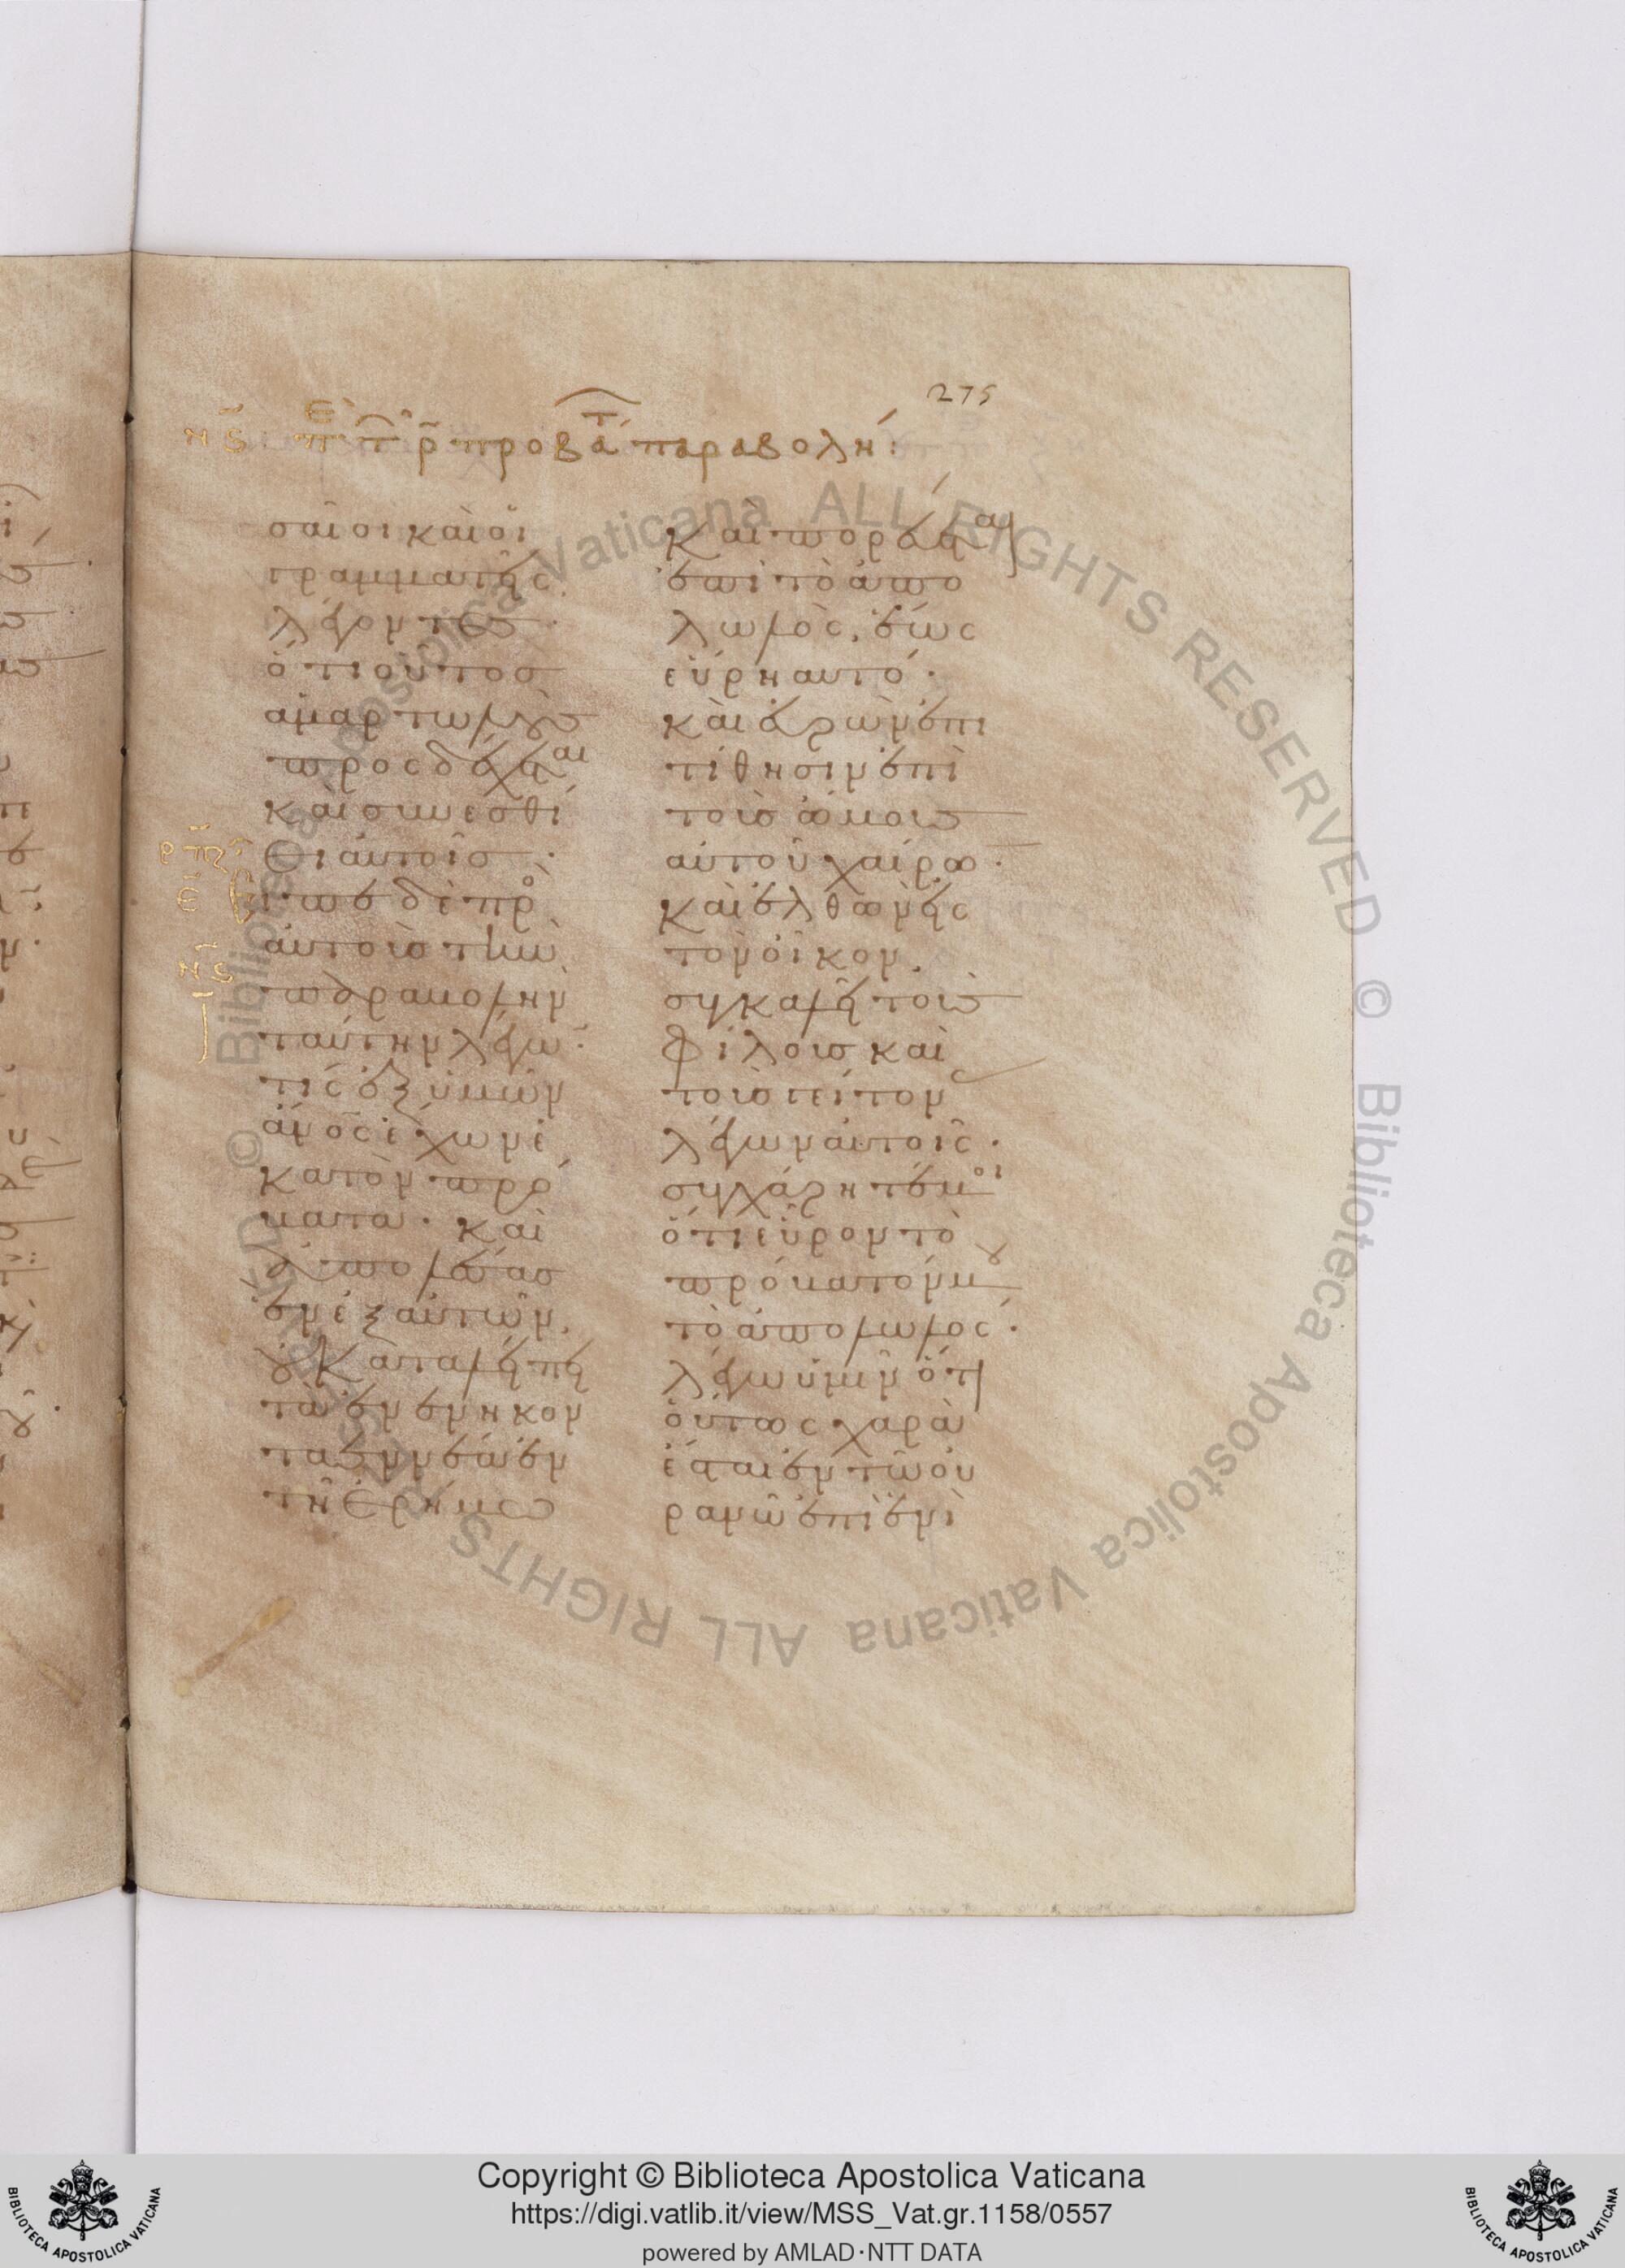 275
νϛ περὶ τῶν ρ προβάτων παραβολή:
σαῖοι καὶ οἱ
γραμματεῖς
λέγοντες·
ὅτι οὗτος
ἁμαρτωλοὺς
προσδέχεται
καὶ συνεσθί
ει αὐτοῖς·
εἶπε δὲ πρὸς
αὐτοὺς τὴν
παραβολὴν
ταύτην λέγων·
τίς ἐξ ὑμῶν
ἄνος ἔχων ἑ
κατὸν πρό
βατα· καὶ
ἀπολέσας
ἓν ἐξ αὐτῶν,
οὐ καταλείπει
τὰ ἐνενήκον
τα ἐννέα ἐν
τῇ ἐρήμω
καὶ πορεύεται
ἐπὶ τὸ ἀπο
λωλός, ἕως
εὕρη αὐτό·
καὶ εὑρὼν ἐπι
τίθησιν ἐπὶ
τοὺς ὤμους
αὐτοῦ χαίρων·
καὶ ἐλθὼν εἰς
τὸν οἶκον,
συγκαλεῖ τοὺς
φίλους καὶ
τοὺς γείτον
λέγων αὐτοῖς·
συγχάρητέ μοι
ὅτι εὗρον τὸ
πρόβατόν μου
τὸ ἀπολωλός·
λέγω ὑμῖν ὅτι
οὕτως χαρὰ
ἔσται ἐν τῶ οὐ
ρανῶ ἐπὶ ἑνὶ
Copyright © Biblioteca Apostolica Vaticana
https://digi.vatlib.it/view/MSS_Vat.gr.1158/0557
powered by AMLAD·NTT DATA
BIBLIOTECA APOSTOLICA VATICANA
BIBLIOTECA APOSTOLICA VATICANA